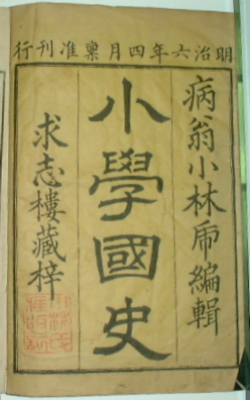 明治六年四月稟准刊行
病翁小林乕編輯
小學國史
求志樓藏梓